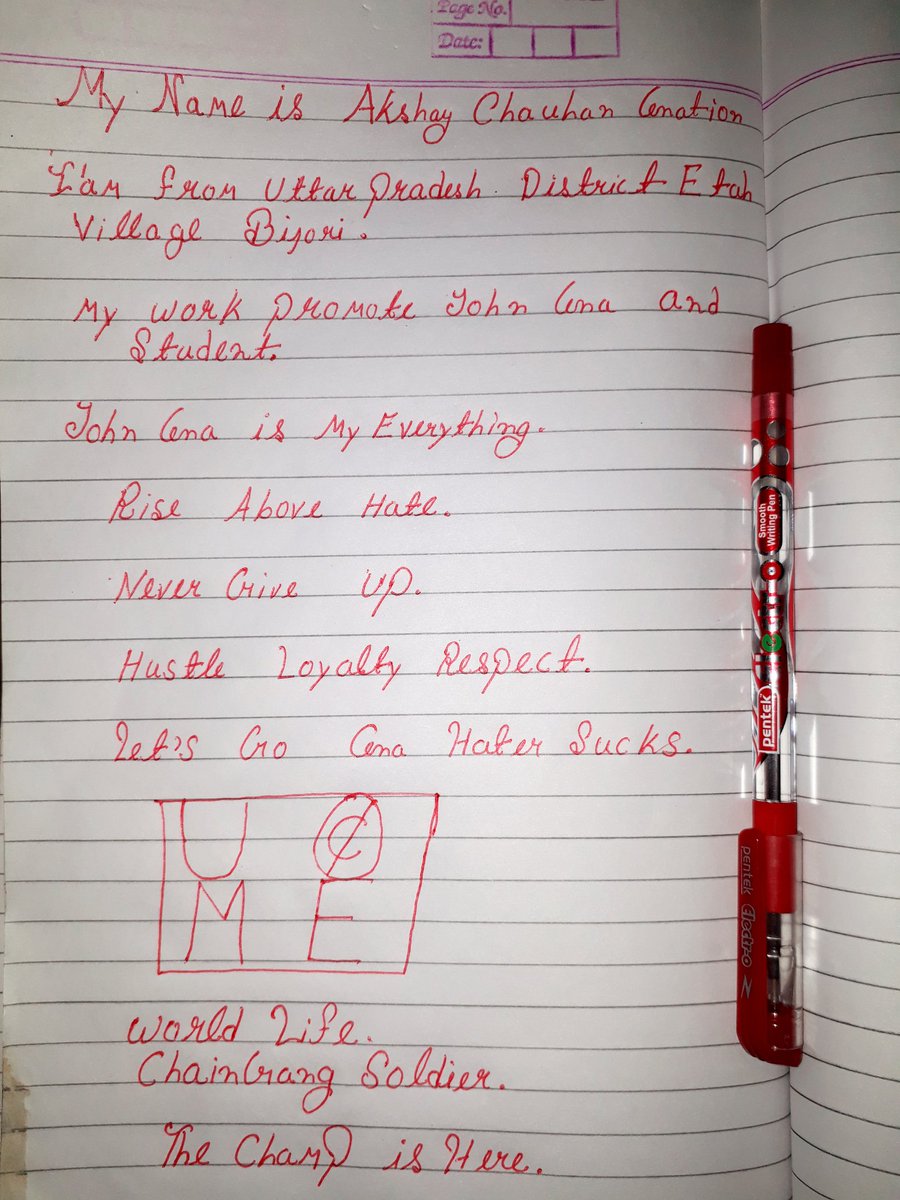 Page No.
Date:
My Name is Akshay Chauhan Cenation
I'am from Uttar Pradesh. District Etah
Village Bijori.
My work promote John Cena and
Student.
John Cena is My Everything.
Rise Above Hate.
Never Give UP.
Hustle Loyalty Respect.
Let's Go Cena Hater Sucks.
U C
M E
World Life.
ChainGang Soldier.
The Champ is Here.
Smooth
Writing Pen
Electro
pentek
pentek Electro